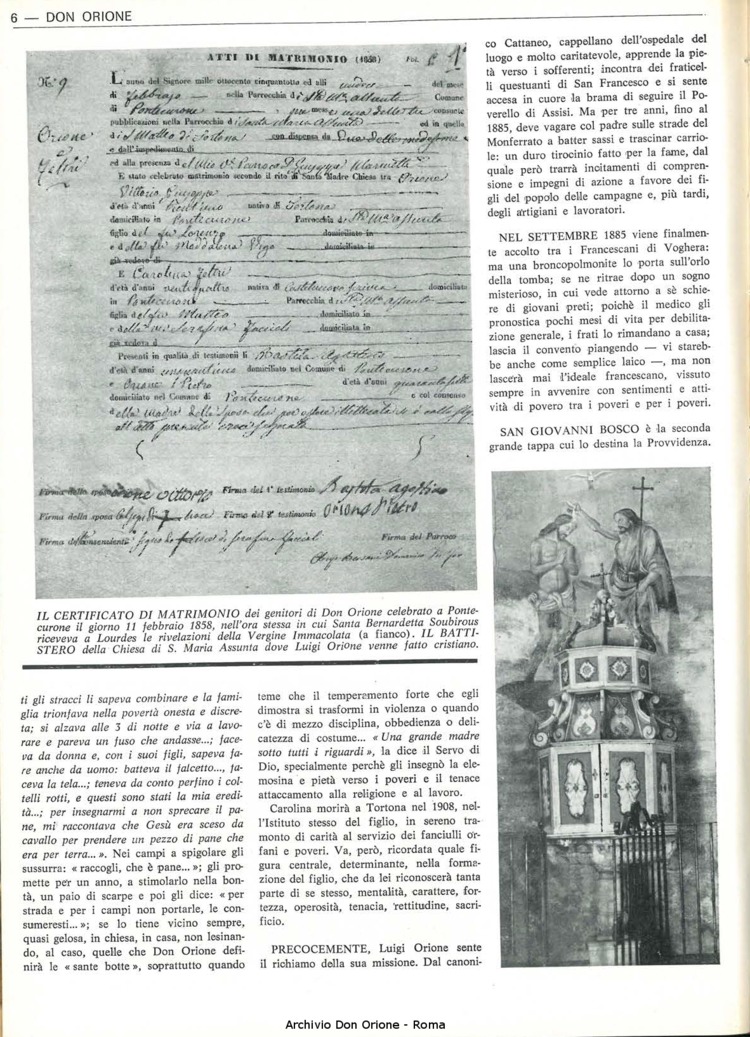 6 — DON ORIONE
ATTI DI MATRIMONIO (1858)
N.° 9
L'anno del Signore mille ottocento cinquantotto ed alli undici del mese
di Febbrajo nella Parrocchia di Comune
di Pontecurone
pubblicazioni nella Parrocchia di Santa Maria Assunta ed in quella
di S. Matteo di Tortona con dispensa da
e dall'impedimento di
ed alla presenza
E stato celebrato matrimonio secondo il rito di Santa Madre Chiesa tra Orione
Vittorio
d'età d'anni nativo di Tortona
domiciliato in Pontecurone Parrocchia di
figlio del fu Lorenzo domiciliato in
e della fu Maddalena domiciliata in
già vedovo di
E Carolina Feltri
d'età d'anni ventiquattro nativa di Castelnuovo Scrivia domiciliata
in Pontecurone Parrocchia di
figlia del fu Matteo domiciliato in
e della Serafina domiciliata in
già vedova di
Presenti in qualità di testimonii li
d'età d'anni domiciliato nel Comune di Pontecurone
e Orione Pietro d'età d'anni
domiciliato nel Comune di Pontecurone e col consenso
Orione
e
Feltri
Firma dello sposo Orione Vittorio Firma del 1° testimonio Agostino
Firma della sposa Firma del 2° testimonio Orione Pietro
Firma del Parroco
IL CERTIFICATO DI MATRIMONIO dei genitori di Don Orione celebrato a Ponte-
curone il giorno 11 febbraio 1858, nell'ora stessa in cui Santa Bernardetta Soubirous
riceveva a Lourdes le rivelazioni della Vergine Immacolata (a fianco). IL BATTI-
STERO della Chiesa di S. Maria Assunta dove Luigi Orione venne fatto cristiano.
ti gli stracci li sapeva combinare e la fami-
glia trionfava nella povertà onesta e discre-
ta; si alzava alle 3 di notte e via a lavo-
rare e pareva un fuso che andasse...; face-
va da donna e, con i suoi figli, sapeva fa-
re anche da uomo: batteva il falcetto..., fa-
ceva la tela...; teneva da conto perfino i col-
telli rotti, e questi sono stati la mia eredi-
tà...; per insegnarmi a non sprecare il pa-
ne, mi raccontava che Gesù era sceso da
cavallo per prendere un pezzo di pane che
era per terra... ». Nei campi a spigolare gli
sussurra: « raccogli, che è pane... »; gli pro-
mette per un anno, a stimolarlo nella bon-
tà, un paio di scarpe e poi gli dice: « per
strada e per i campi non portarle, le con-
sumeresti... »; se lo tiene vicino sempre,
quasi gelosa, in chiesa, in casa, non lesinan-
do, al caso, quelle che Don Orione defi-
nirà le « sante botte », soprattutto quando
teme che il temperamento forte che egli
dimostra si trasformi in violenza o quando
c'è di mezzo disciplina, obbedienza o deli-
catezza di costume... « Una grande madre
sotto tutti i riguardi », la dice il Servo di
Dio, specialmente perchè gli insegnò la ele-
mosina e pietà verso i poveri e il tenace
attaccamento alla religione e al lavoro.
Carolina morirà a Tortona nel 1908, nel-
l'Istituto stesso del figlio, in sereno tra-
monto di carità al servizio dei fanciulli or-
fani e poveri. Va, però, ricordata quale fi-
gura centrale, determinante, nella forma-
zione del figlio, che da lei riconoscerà tanta
parte di se stesso, mentalità, carattere, for-
tezza, operosità, tenacia, rettitudine, sacri-
ficio.
PRECOCEMENTE, Luigi Orione sente
il richiamo della sua missione. Dal canoni-
co Cattaneo, cappellano dell'ospedale del
luogo e molto caritatevole, apprende la pie-
tà verso i sofferenti; incontra dei fraticel-
li questuanti di San Francesco e si sente
accesa in cuore la brama di seguire il Po-
verello di Assisi. Ma per tre anni, fino al
1885, deve vagare col padre sulle strade del
Monferrato a batter sassi e trascinar carrio-
le: un duro tirocinio fatto per la fame, dal
quale però trarrà incitamenti di compren-
sione e impegni di azione a favore dei fi-
gli del popolo delle campagne e, più tardi,
degli artigiani e lavoratori.
NEL SETTEMBRE 1885 viene finalmen-
te accolto tra i Francescani di Voghera:
ma una broncopolmonite lo porta sull'orlo
della tomba; se ne ritrae dopo un sogno
misterioso, in cui vede attorno a sè schie-
re di giovani preti; poichè il medico gli
pronostica pochi mesi di vita per debilita-
zione generale, i frati lo rimandano a casa;
lascia il convento piangendo — vi stareb-
be anche come semplice laico —, ma non
lascerà mai l'ideale francescano, vissuto
sempre in avvenire con sentimenti e atti-
vità di povero tra i poveri e per i poveri.
SAN GIOVANNI BOSCO è la seconda
grande tappa cui lo destina la Provvidenza.
Archivio Don Orione - Roma